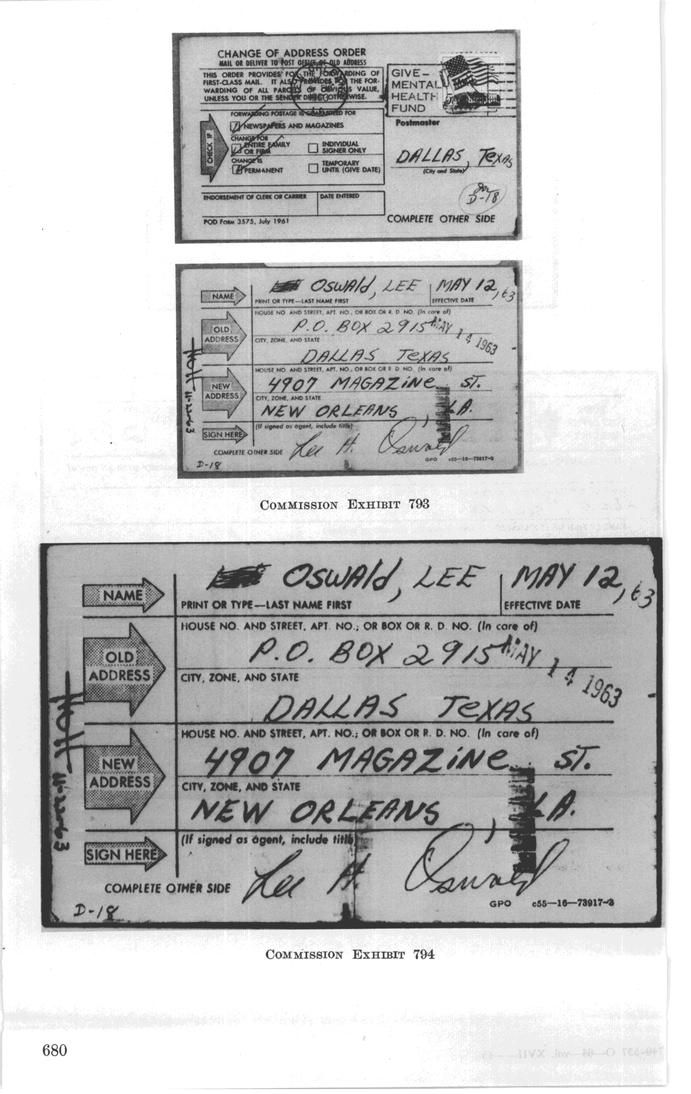 CHANGE OF ADDRESS ORDER
MAIL OR DELIVER TO POST OFFICE OF OLD ADDRESS
THIS ORDER PROVIDES FOR THE FORWARDING OF
FIRST-CLASS MAIL. IT ALSO PROVIDES FOR THE FOR-
WARDING OF ALL PARCELS OF OBVIOUS VALUE,
UNLESS YOU OR THE SENDER DIRECT OTHERWISE.
GIVE—
MENTAL
HEALTH
FUND
FORWARDING POSTAGE IS GUARANTEED FOR
NEWSPAPERS AND MAGAZINES
CHECK IF
CHANGE FOR
ENTIRE FAMILY
OR FIRM
INDIVIDUAL
SIGNER ONLY
CHANGE IS
PERMANENT
TEMPORARY
UNTIL (GIVE DATE)
Postmaster
DALLAS, TEXAS
(City and State)
D-18
ENDORSEMENT OF CLERK OR CARRIER DATE ENTERED
POD Form 3575, July 1961
COMPLETE OTHER SIDE
NAME
OSWAld, LEE MAY 12, 63
PRINT OR TYPE—LAST NAME FIRST EFFECTIVE DATE
HOUSE NO. AND STREET, APT. NO., OR BOX OR R. D. NO. (In care of)
OLD
ADDRESS
P.O. BOX 2915
MAY 14 1963
CITY, ZONE, AND STATE
DALLAS TEXAS
HOUSE NO. AND STREET, APT. NO., OR BOX OR R. D. NO. (In care of)
NEW
ADDRESS
4907 MAGAZiNe ST.
CITY, ZONE, AND STATE
NEW ORLEANS, LA.
11-23-63
SIGN HERE
(If signed as agent, include title)
Lee H. Oswald
COMPLETE OTHER SIDE
GPO c55—16—73917-3
D-18
COMMISSION EXHIBIT 793
NAME
OSWAld, LEE MAY 12, 63
PRINT OR TYPE—LAST NAME FIRST EFFECTIVE DATE
HOUSE NO. AND STREET, APT. NO.; OR BOX OR R. D. NO. (In care of)
OLD
ADDRESS
P.O. BOX 2915
MAY 14 1963
CITY, ZONE, AND STATE
DALLAS TEXAS
HOUSE NO. AND STREET, APT. NO.; OR BOX OR R. D. NO. (In care of)
NEW
ADDRESS
4907 MAGAZiNe ST.
CITY, ZONE, AND STATE
NEW ORLEANS, LA.
11-23-63
SIGN HERE
(If signed as agent, include title)
Lee H. Oswald
COMPLETE OTHER SIDE
GPO c55—16—73917-3
D-18
COMMISSION EXHIBIT 794
680